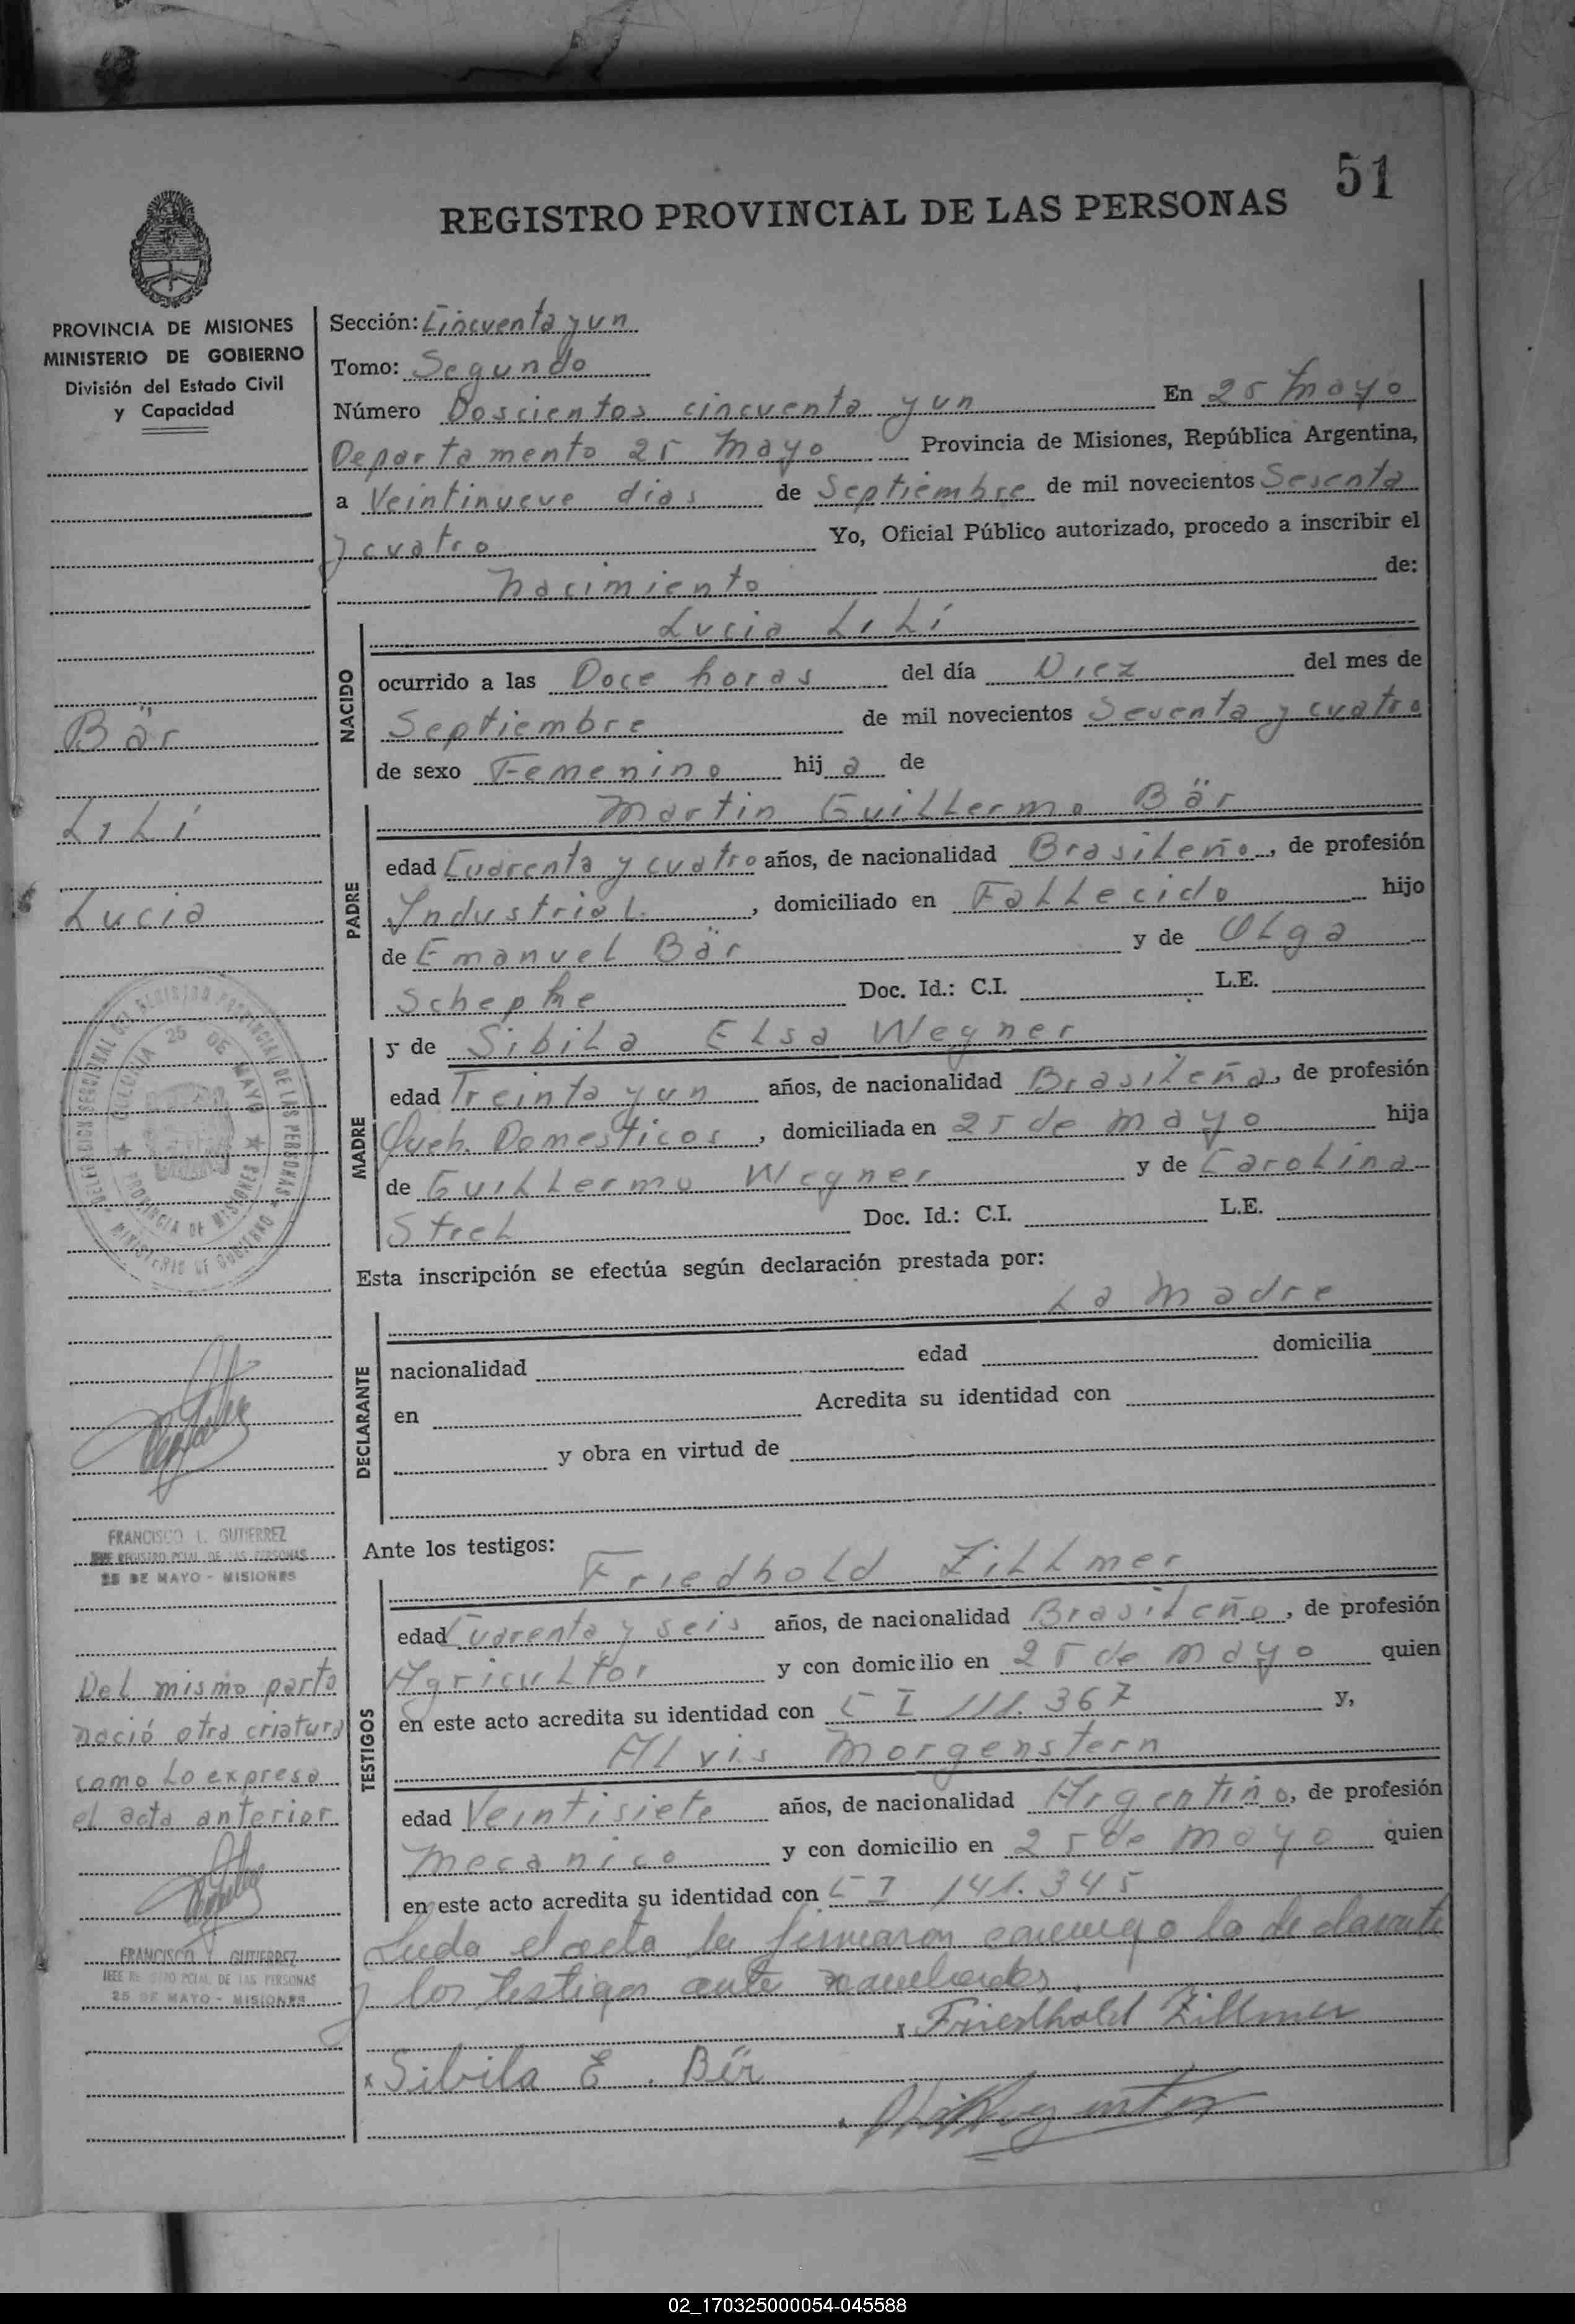 51
REGISTRO PROVINCIAL DE LAS PERSONAS
PROVINCIA DE MISIONES
MINISTERIO DE GOBIERNO
División del Estado Civil
y Capacidad
Bär
Lilí
Lucia
DELEGACION SECCIONAL DEL REGISTRO PROVINCIAL DE LAS PERSONAS
COLONIA 25 DE MAYO
PROVINCIA DE MISIONES
MINISTERIO DE GOBIERNO
FRANCISCO GUTIERREZ
JEFE REGISTRO PCIAL. DE LAS PERSONAS
25 DE MAYO - MISIONES
Del mismo parto
nació otra criatura
como lo expresa
el acta anterior
FRANCISCO GUTIERREZ
JEFE REGISTRO PCIAL. DE LAS PERSONAS
25 DE MAYO - MISIONES
Sección: Cincuenta y un
Tomo: Segundo
Número Doscientos cincuenta y un En 25 Mayo
Departamento 25 Mayo Provincia de Misiones, República Argentina,
a Veintinueve dias de Septiembre de mil novecientos Sesenta
y cuatro Yo, Oficial Público autorizado, procedo a inscribir el
nacimiento de:
Lucia Lilí
NACIDO
ocurrido a las Doce horas del día Diez del mes de
Septiembre de mil novecientos Seventa y cuatro
de sexo Femenino hij a de
Martin Guillermo Bär
PADRE
edad Cuarenta y cuatro años, de nacionalidad Brasileño, de profesión
Industrial, domiciliado en Fallecido hijo
de Emanuel Bär y de Olga
Schepke Doc. Id.: C.I. L.E.
y de Sibila Elsa Wegner
MADRE
edad Treinta y un años, de nacionalidad Brasileña, de profesión
Queh. Domesticos, domiciliada en 25 de mayo hija
de Guillermo Wegner y de Carolina
Strel Doc. Id.: C.I. L.E.
Esta inscripción se efectúa según declaración prestada por:
La Madre
DECLARANTE
nacionalidad edad domicilia
en Acredita su identidad con
y obra en virtud de
Ante los testigos:
Friedhold Zillmer
TESTIGOS
edad Cuarenta y seis años, de nacionalidad Brasileño, de profesión
Agricultor y con domicilio en 25 de mayo quien
en este acto acredita su identidad con C I 111.367 y,
Alvis Morgenstern
edad Veintisiete años, de nacionalidad Argentino, de profesión
Mecanico y con domicilio en 25 de mayo quien
en este acto acredita su identidad con C I 141.345
Leeda el acta la firmaron conmigo la declarante
y los testigos ante nombrados.
x Friedhold Zillmer
x Sibila E. Bär
02_170325000054-045588